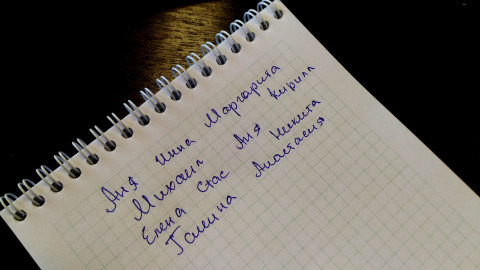 Аня Инна Маргарита
Михаил Аня Кирилл
Елена Стас Никита
Галина Анастасия